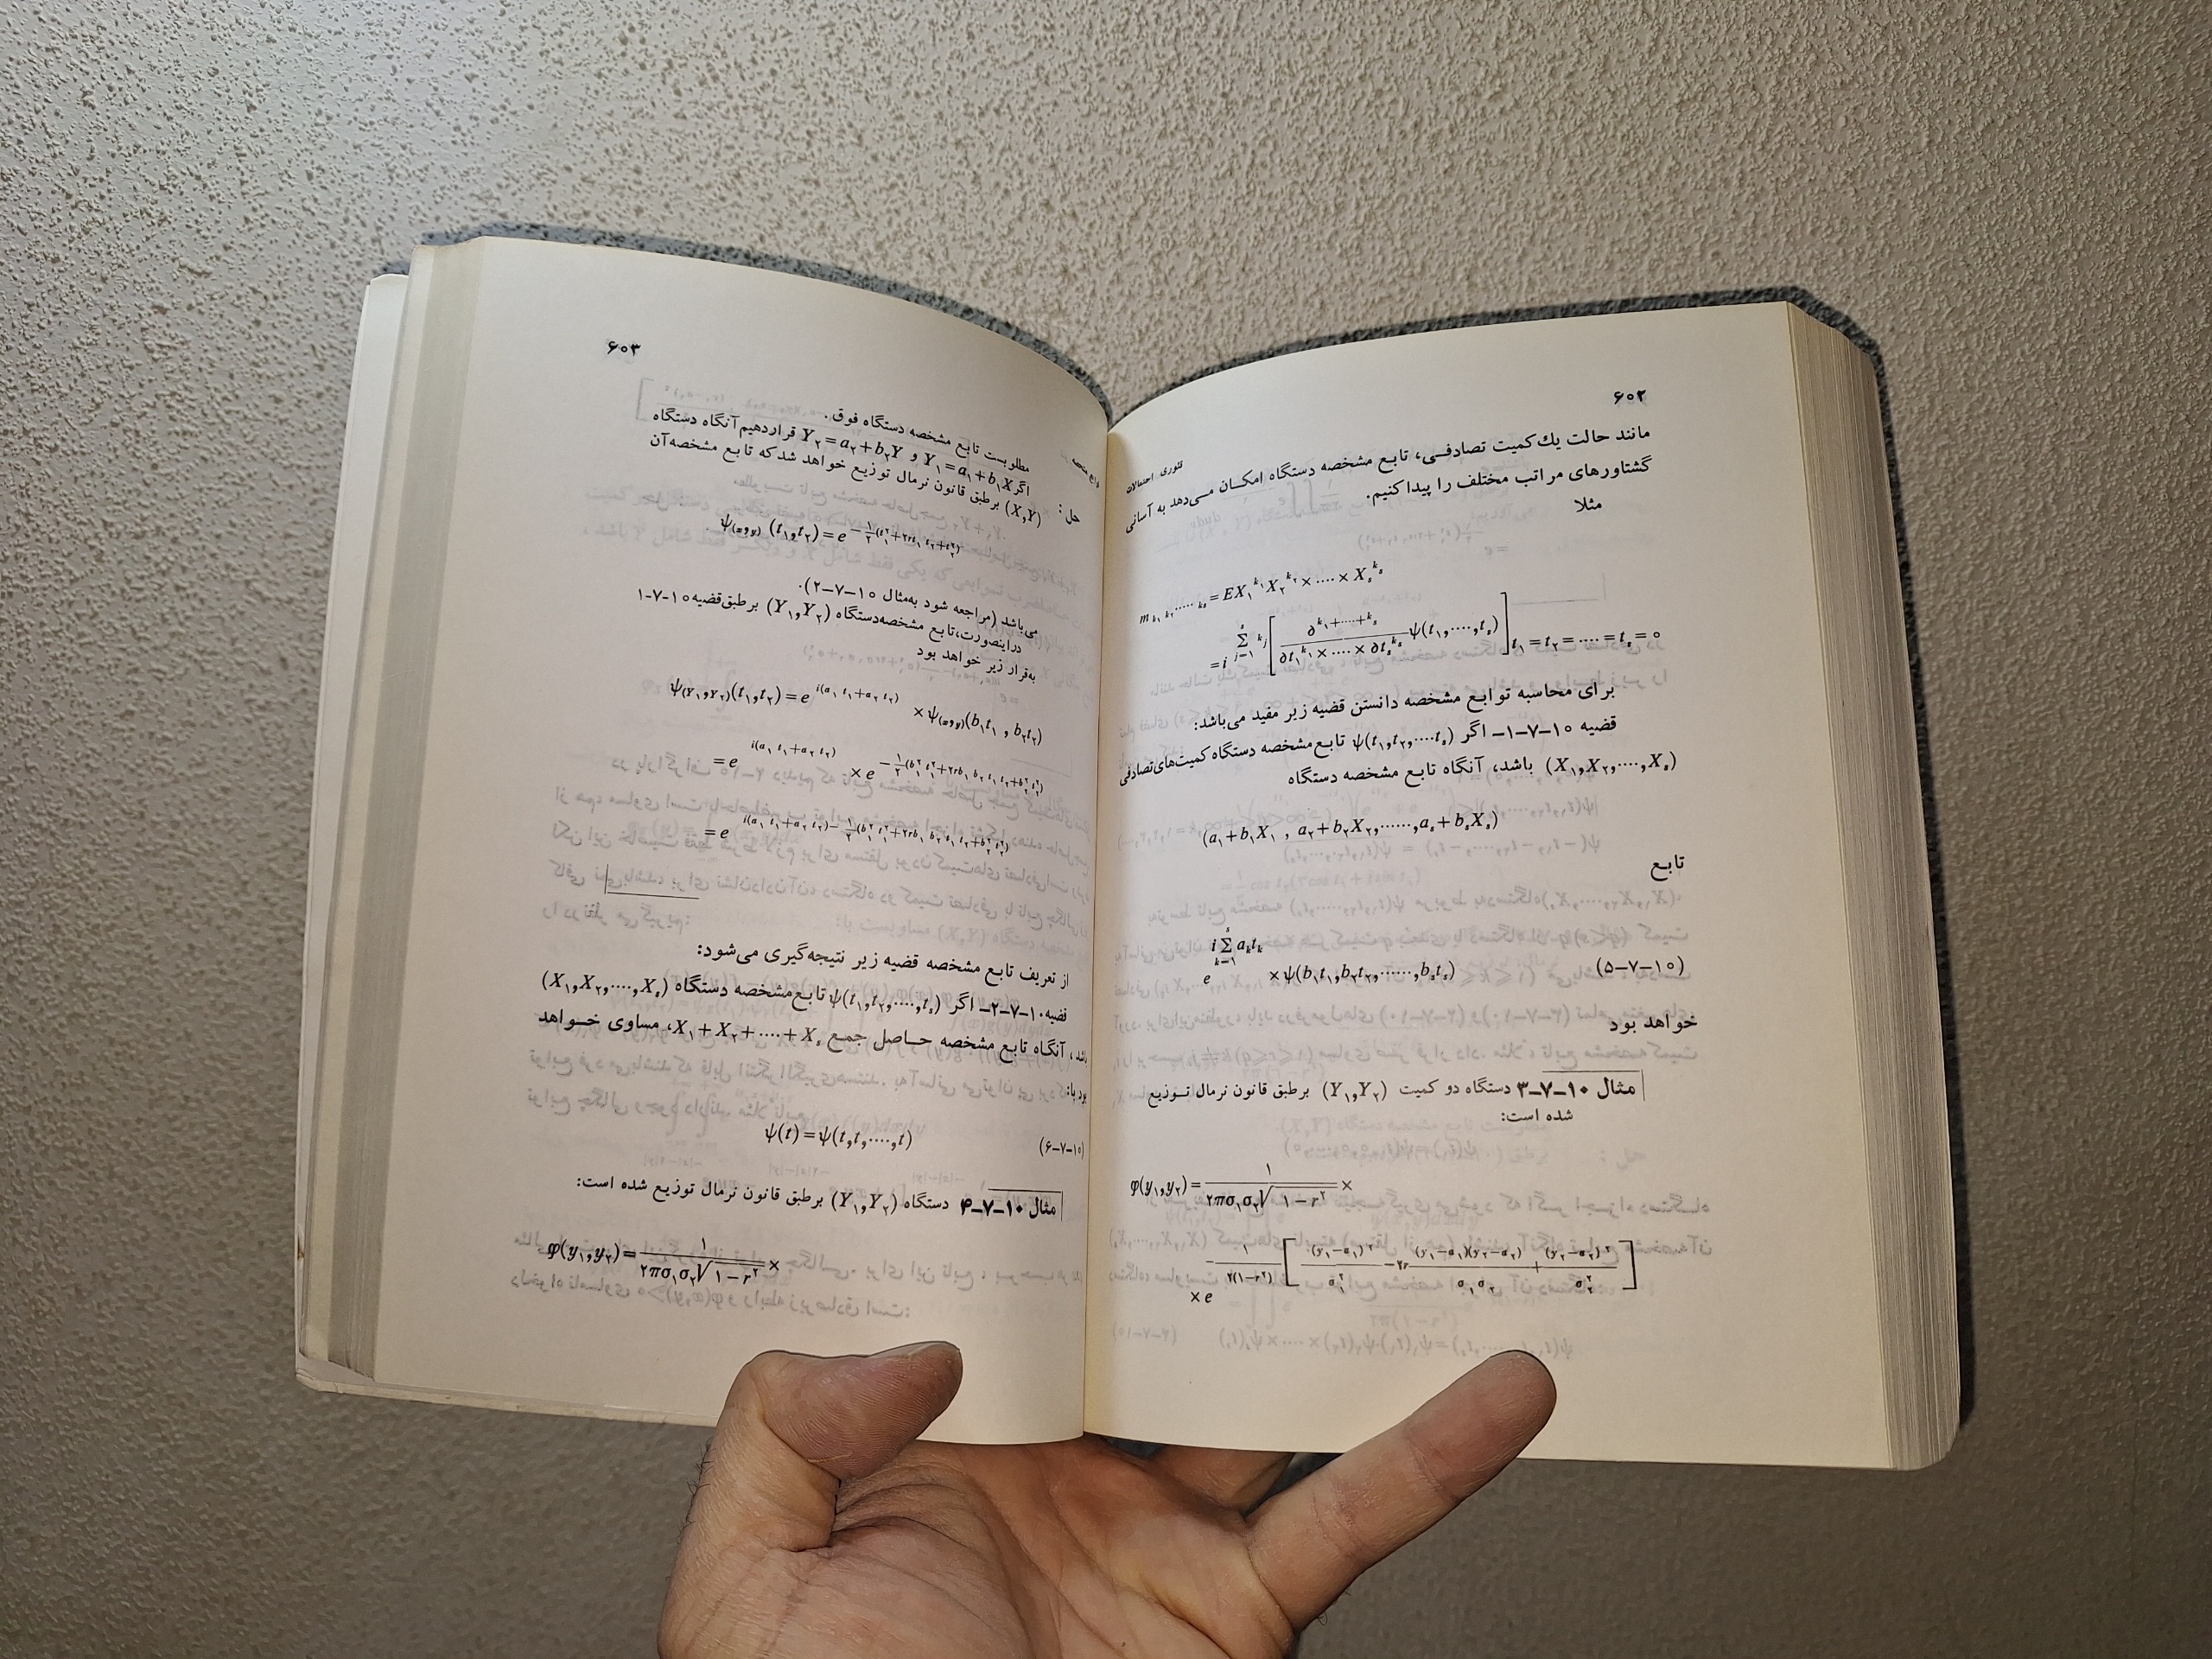 ۶۰۲
تئوری احتمالات
مانند حالت یك کمیت تصادفی، تابع مشخصه دستگاه امکان می‌دهد به آسانی
گشتاورهای مراتب مختلف را پیدا کنیم.
مثلا
m k₁ k₂ ..... kₛ = EX₁^k₁ X₂^k₂ × .... × Xₛ^kₛ
= i^(Σ_{j=1}^{s} kⱼ) [ ∂^(k₁+....+kₛ) / (∂t₁^k₁ × .... × ∂tₛ^kₛ) ψ(t₁,....,tₛ) ] t₁ = t₂ = .... = tₛ = ۰
برای محاسبه توابع مشخصه دانستن قضیه زیر مفید می‌باشد:
قضیه ۱۰-۷-۱- اگر ψ(t₁,t₂,....tₛ) تابع مشخصه دستگاه کمیت‌های تصادفی
(X₁,X₂,....,Xₛ) باشد، آنگاه تابع مشخصه دستگاه
(a₁+b₁X₁ , a₂+b₂X₂,......,aₛ+bₛXₛ)
تابع
e^(i Σ_{k=1}^{s} aₖtₖ) × ψ(b₁t₁,b₂t₂,......,bₛtₛ) (۱۰-۷-۵)
خواهد بود
مثال ۱۰-۷-۳ دستگاه دو کمیت (Y₁,Y₂) برطبق قانون نرمال توزیع
شده است:
φ(y₁,y₂) = ۱ / (۲πσ₁σ₂√(۱-r²)) ×
× e^( -۱/(۲(۱-r²)) [ (y₁-a₁)²/σ₁² -۲r (y₁-a₁)(y₂-a₂)/(σ₁σ₂) + (y₂-a₂)²/σ₂² ] )
۶۰۳
مطلوبست تابع مشخصه دستگاه فوق.
حل: اگر Y₁=a₁+b₁X و Y₂=a₂+b₂Y قرار دهیم آنگاه دستگاه
(X,Y) برطبق قانون نرمال توزیع خواهد شد که تابع مشخصه آن
ψ(x,y) (t₁,t₂) = e^(-½(t₁²+۲rt₁t₂+t₂²))
می‌باشد (مراجعه شود به مثال ۱۰-۷-۲).
دراینصورت، تابع مشخصه دستگاه (Y₁,Y₂) برطبق قضیه ۱۰-۷-۱
به‌قرار زیر خواهد بود
ψ(Y₁,Y₂)(t₁,t₂) = e^(i(a₁t₁+a₂t₂)) × ψ(x,y)(b₁t₁ , b₂t₂)
= e^(i(a₁t₁+a₂t₂)) × e^(-½(b₁²t₁²+۲rb₁b₂t₁t₂+b₂²t₂²))
= e^(i(a₁t₁+a₂t₂)-½(b₁²t₁²+۲rb₁b₂t₁t₂+b₂²t₂²))
از تعریف تابع مشخصه قضیه زیر نتیجه‌گیری می‌شود:
قضیه ۱۰-۷-۲- اگر ψ(t₁,t₂,....,tₛ) تابع مشخصه دستگاه (X₁,X₂,....,Xₛ)
باشد، آنگاه تابع مشخصه حاصل جمع X₁+X₂+....+Xₛ، مساوی خواهد
بود با:
(۱۰-۷-۶) ψ(t) = ψ(t,t,....,t)
مثال ۱۰-۷-۴ دستگاه (Y₁,Y₂) برطبق قانون نرمال توزیع شده است:
φ(y₁,y₂) = ۱ / (۲πσ₁σ₂√(۱-r²)) ×